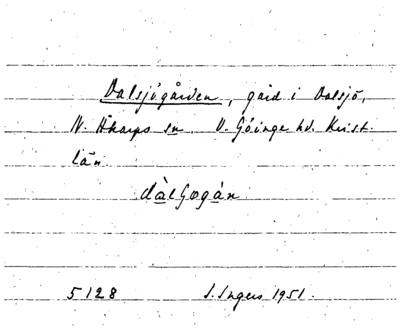 Dalsjögården, gård i Dalsjö,
N. Åkarps sn V. Göinge hd. Krist.
län
5128 I. Ingers 1951.